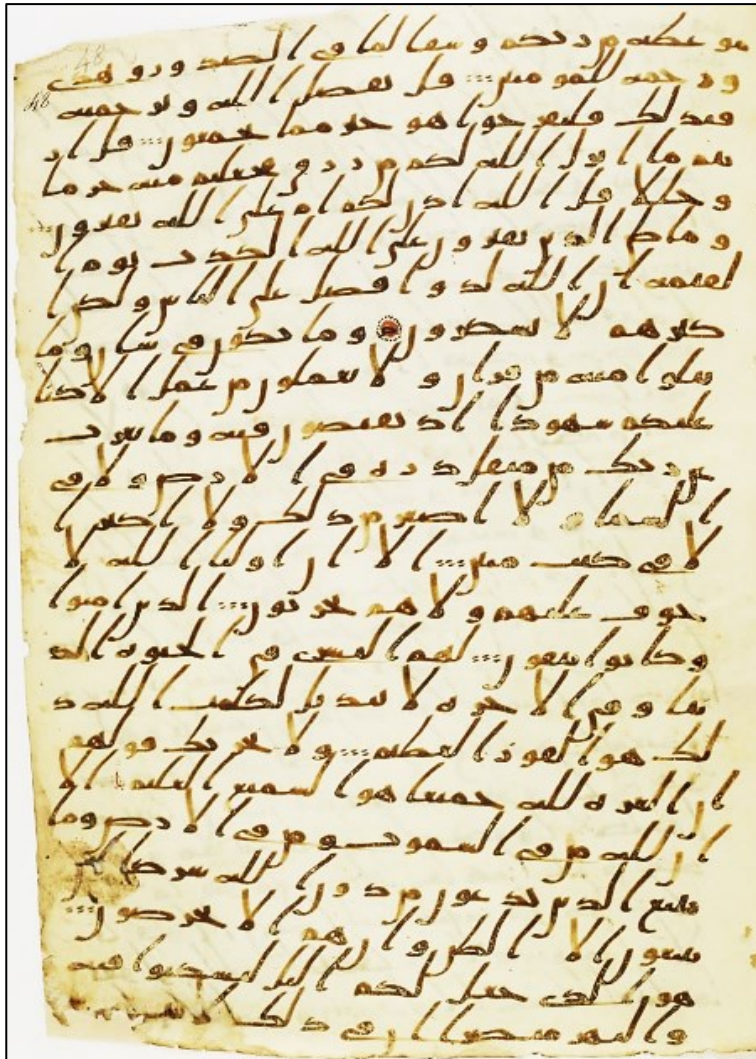 48
48
موعظه من ربكم وشفا لما في الصدور وهدى
ورحمه للمومنين قل بفضل الله وبرحمته
فبذلك فليفرحوا هو خير مما يجمعون قل ار
يتم ما انزل الله لكم من رزق فجعلتم منه حرما
وحللا قل الله اذن لكم ام على الله تفترون
وما ظن الذين يفترون على الله الكذب يوم ا
لقيمه ان الله لذوا فضل على الناس ولكن ا
كثرهم لا يشكرون وما تكون في شان وما
تتلوا منه من قران ولا تعملون من عمل الا كنا
عليكم شهودا اذ تفيضون فيه وما يعزب
عن ربك من مثقال ذره في الارض ولا في
السما ولا اصغر من ذلك ولا اكبر ا
لا في كتب مبين الا ان اوليا الله لا
خوف عليهم ولا هم يحزنون الذين امنوا
وكانوا يتقون لهم البشرى في الحيوه الد
نيا وفي الاخره لا تبديل لكلمت الله ذ
لك هو الفوز العظيم ولا يحزنك قولهم
ان العزه لله جميعا هو السميع العليم الا
ان لله من في السموت ومن في الارض وما
يتبع الذين يدعون من دون الله شركا ان
يتبعون الا الظن وان هم الا يخرصون
هو الذي جعل لكم اليل لتسكنوا فيه
والنهر مبصرا ان في ذلك